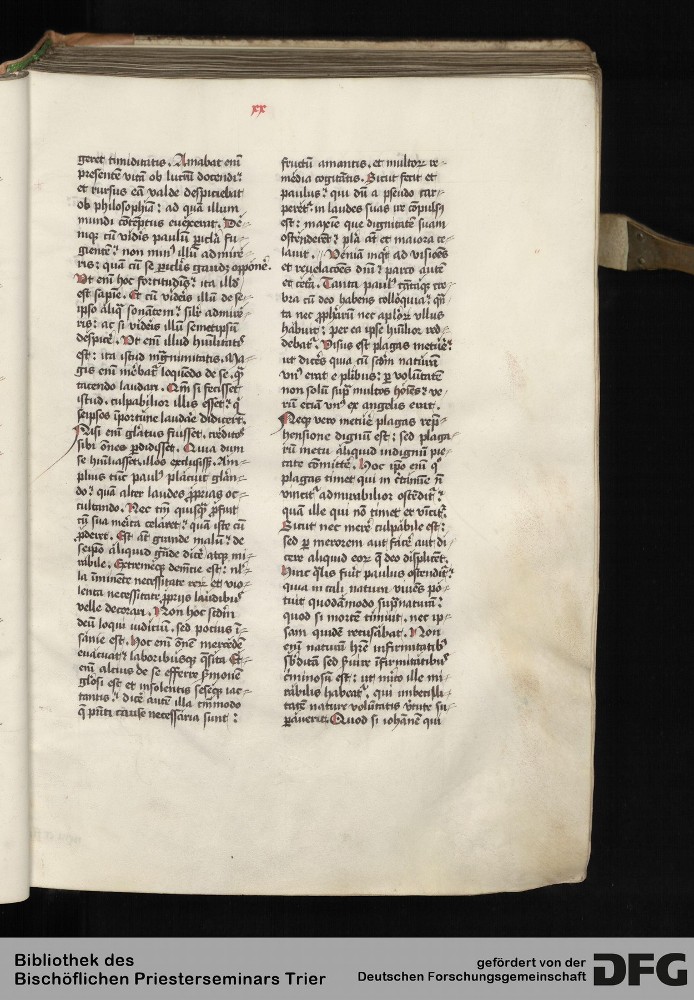 xx
geret timiditatis. Amabat em̄
presentē vitā ob lucrū docendi:
et rursus eā valde despiciebat
ob philosophiā: ad quā illum
mundi cōtēptus euexerat. De-
niq; cū videris paulū pericla fu-
gientē: non min⁹ illū admire-
ris: quā cū se periclis gaudēs opponē.
Ut em̄ hoc fortitudinis: ita illđ
est sapiē. Et cū videris illū de se
ipso aliqđ sonantem: silr̄ admire-
ris: ac si videris illū semetipsū
despicē. Ut em̄ illud humilitat͛
est: ita istud mḡnimitatis. Ma-
gis em̄ merebat̄ loquēdo de se. q̄
tacendo laudari. Qm̄ si fecisset
istud. culpabilior illis esset: q̄
seipsos īportune laudare didicerūt.
Nisi em̄ gl̄atus fuisset. creditos
sibi om̄es perdidisset. Quia dum
se humiliasset. illos extulisset. Am-
plius tūc paul⁹ placuit gl̄an-
do: quā alter laudes proprias oc-
cultando. Nec tm̄ quisq; profuit
cū sua merita celaret: quā iste cū
prodeiret. Est aūt grande malū: de
seipso aliquid gn̄de dicē atq; mi-
rabile. Extremeq; demētie est: nl̄-
la imminēte necessitate rerū et vio-
lenta necessitate proprijs laudibus
velle decorari. Non hoc scdm̄
deū loqui iudiciū. sed potius ī-
sanie est. Hoc em̄ om̄em mercedē
euacuat: laboribusq; q̄sita. Et
em̄ altius de se efferre sermonē
gl̄osi est et insolentis seseq; iac-
tantis: dicē autē illa tm̄modo
q̄ pn̄ti cause necessaria sunt:
fructū amantis. et multor͛ re-
media cogitātis. Sicut fecit et
paulus: qui dū a pseudo car-
peret͛. in laudes suas ire cōpulsus
est: maxie que dignitatē suam
ostenderent: pl̄a aūt et maiora ce-
lauit. Veniā inqt ad visiōes
et reuelacōes dn̄i: parco autē
et cetera. Tanta paul⁹ tātaq; cre-
bra cū deo habens colloquia: qn̄-
ta nec prophārū nec aplor͛ vllus
habuit: per ea ipse humilior red-
debat͛. Visus est plagas metuē:
ut diceres quia cū scdm̄ naturā
vn⁹ erat e plibus: per volūtatē
non solū supra multos hoīes: ve-
rū etiā vn⁹ ex angelis erat.
Neq; vero metuē plagas repre-
hensione dignū est: sed plaga-
rū metu aliquid indignū pie-
tate cōmittē. Hoc ipo em̄ q̄
plagas timet qui in certamine nō
vincit͛ admirabilior ostēdit͛:
quā ille qui nō timet et vincit͛.
Sicut nec merē culpabile est:
sed per merorem aut facē aut di-
cere aliquid eor͛ q̄ deo displicēt.
Hinc q̄lis fuit paulus ostendit͛:
qua in tali naturā viuēs po-
tuit quodāmodo supra naturā:
quod si mortē timuit. nec ip-
sam quidē recusabat. Non
em̄ naturā hr̄e infirmitatib⁹
sb̄ditā sed seruire īfirmitatibus
criminosū est: ut m̄ito ille mi-
rabilis habeat͛. qui imbecilli-
tatē nature volūtatis virtute su-
perauerit. Quod si iohānē qui
Bibliothek des
Bischöflichen Priesterseminars Trier
gefördert von der
Deutschen Forschungsgemeinschaft
DFG